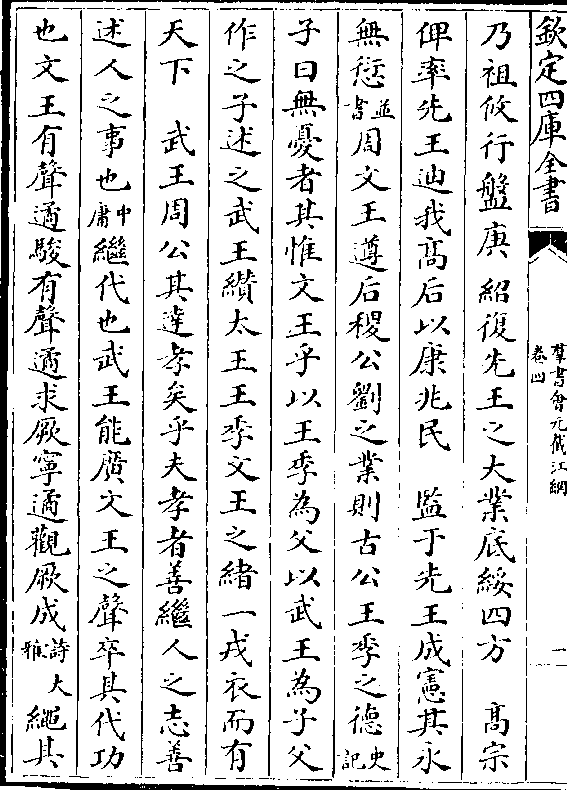 欽定四庫全書
羣書會元截江網
卷四
一
乃祖攸行盤庚　紹復先王之大業底綏四方　髙宗
俾率先王迪我髙后以康兆民　監于先王成憲其永
無愆並書周文王遵后稷公劉之業則古公王季之德史記
子曰無憂者其惟文王乎以王季為父以武王為子父
作之子述之武王纘太王王季文王之緒一戎衣而有
天下　武王周公其達孝矣乎夫孝者善繼人之志善
述人之事也中庸繼代也武王能廣文王之聲卒其代功
也文王有聲遹駿有聲遹求厥寧遹觀厥成詩大雅　繩其